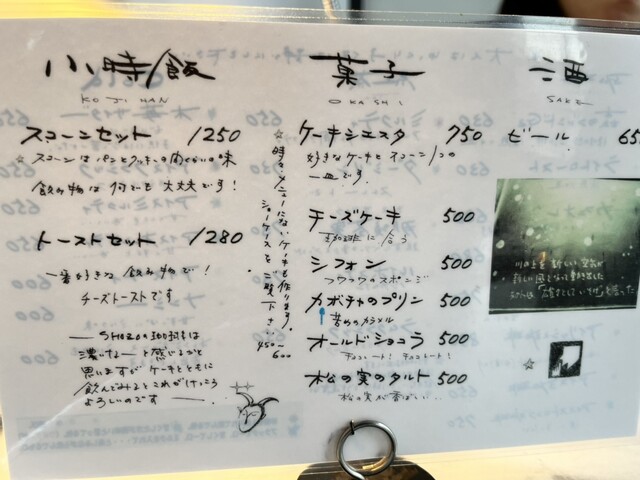 小時飯
KOJI HAN
スコーンセット 1250
☆ スコーンは パンとクッキーの間くらいの味
飲み物は 何でも 大丈夫です！
トーストセット 1280
一番好きな 飲み物で！
チーズトーストです
SHOZOの珈琲は
濃いなーと感じるかと
思いますが ケーキとともに
飲んでみるとこれがけっこう
よろしいのです
☆ 時々メニューにないケーキも作ります。
ショーケースをご覧下さい。
450〜
600
菓子
OKASHI
ケーキシエスタ 750
好きなケーキと スコーン1つの
一皿です。
チーズケーキ 500
珈琲に合う
シフォン 500
フワフワのスポンジ
カボチャのプリン 500
苦めのカラメル
オールドショコラ 500
チョコレート！ チョコレート！
松の実のタルト 500
松の実が香ばしい..
酒
SAKE
ビール 65